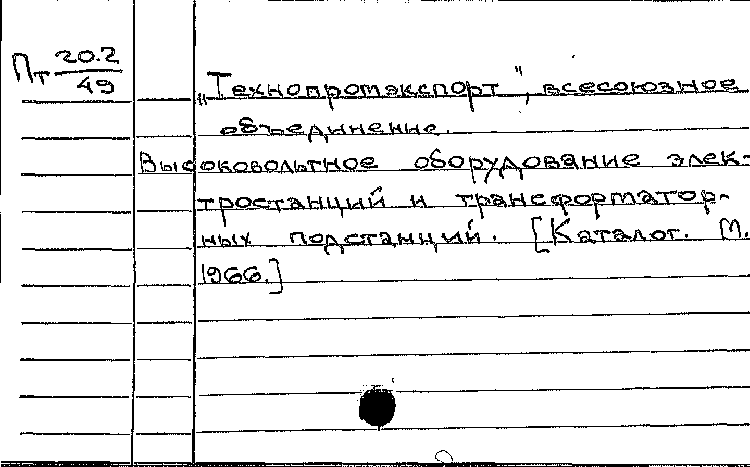 Пт 20.2/49
„Технопромэкспорт", всесоюзное
объединение.
Высоковольтное оборудование элек-
тростанций и трансформатор-
ных подстанций. [Каталог. М.
1966.]